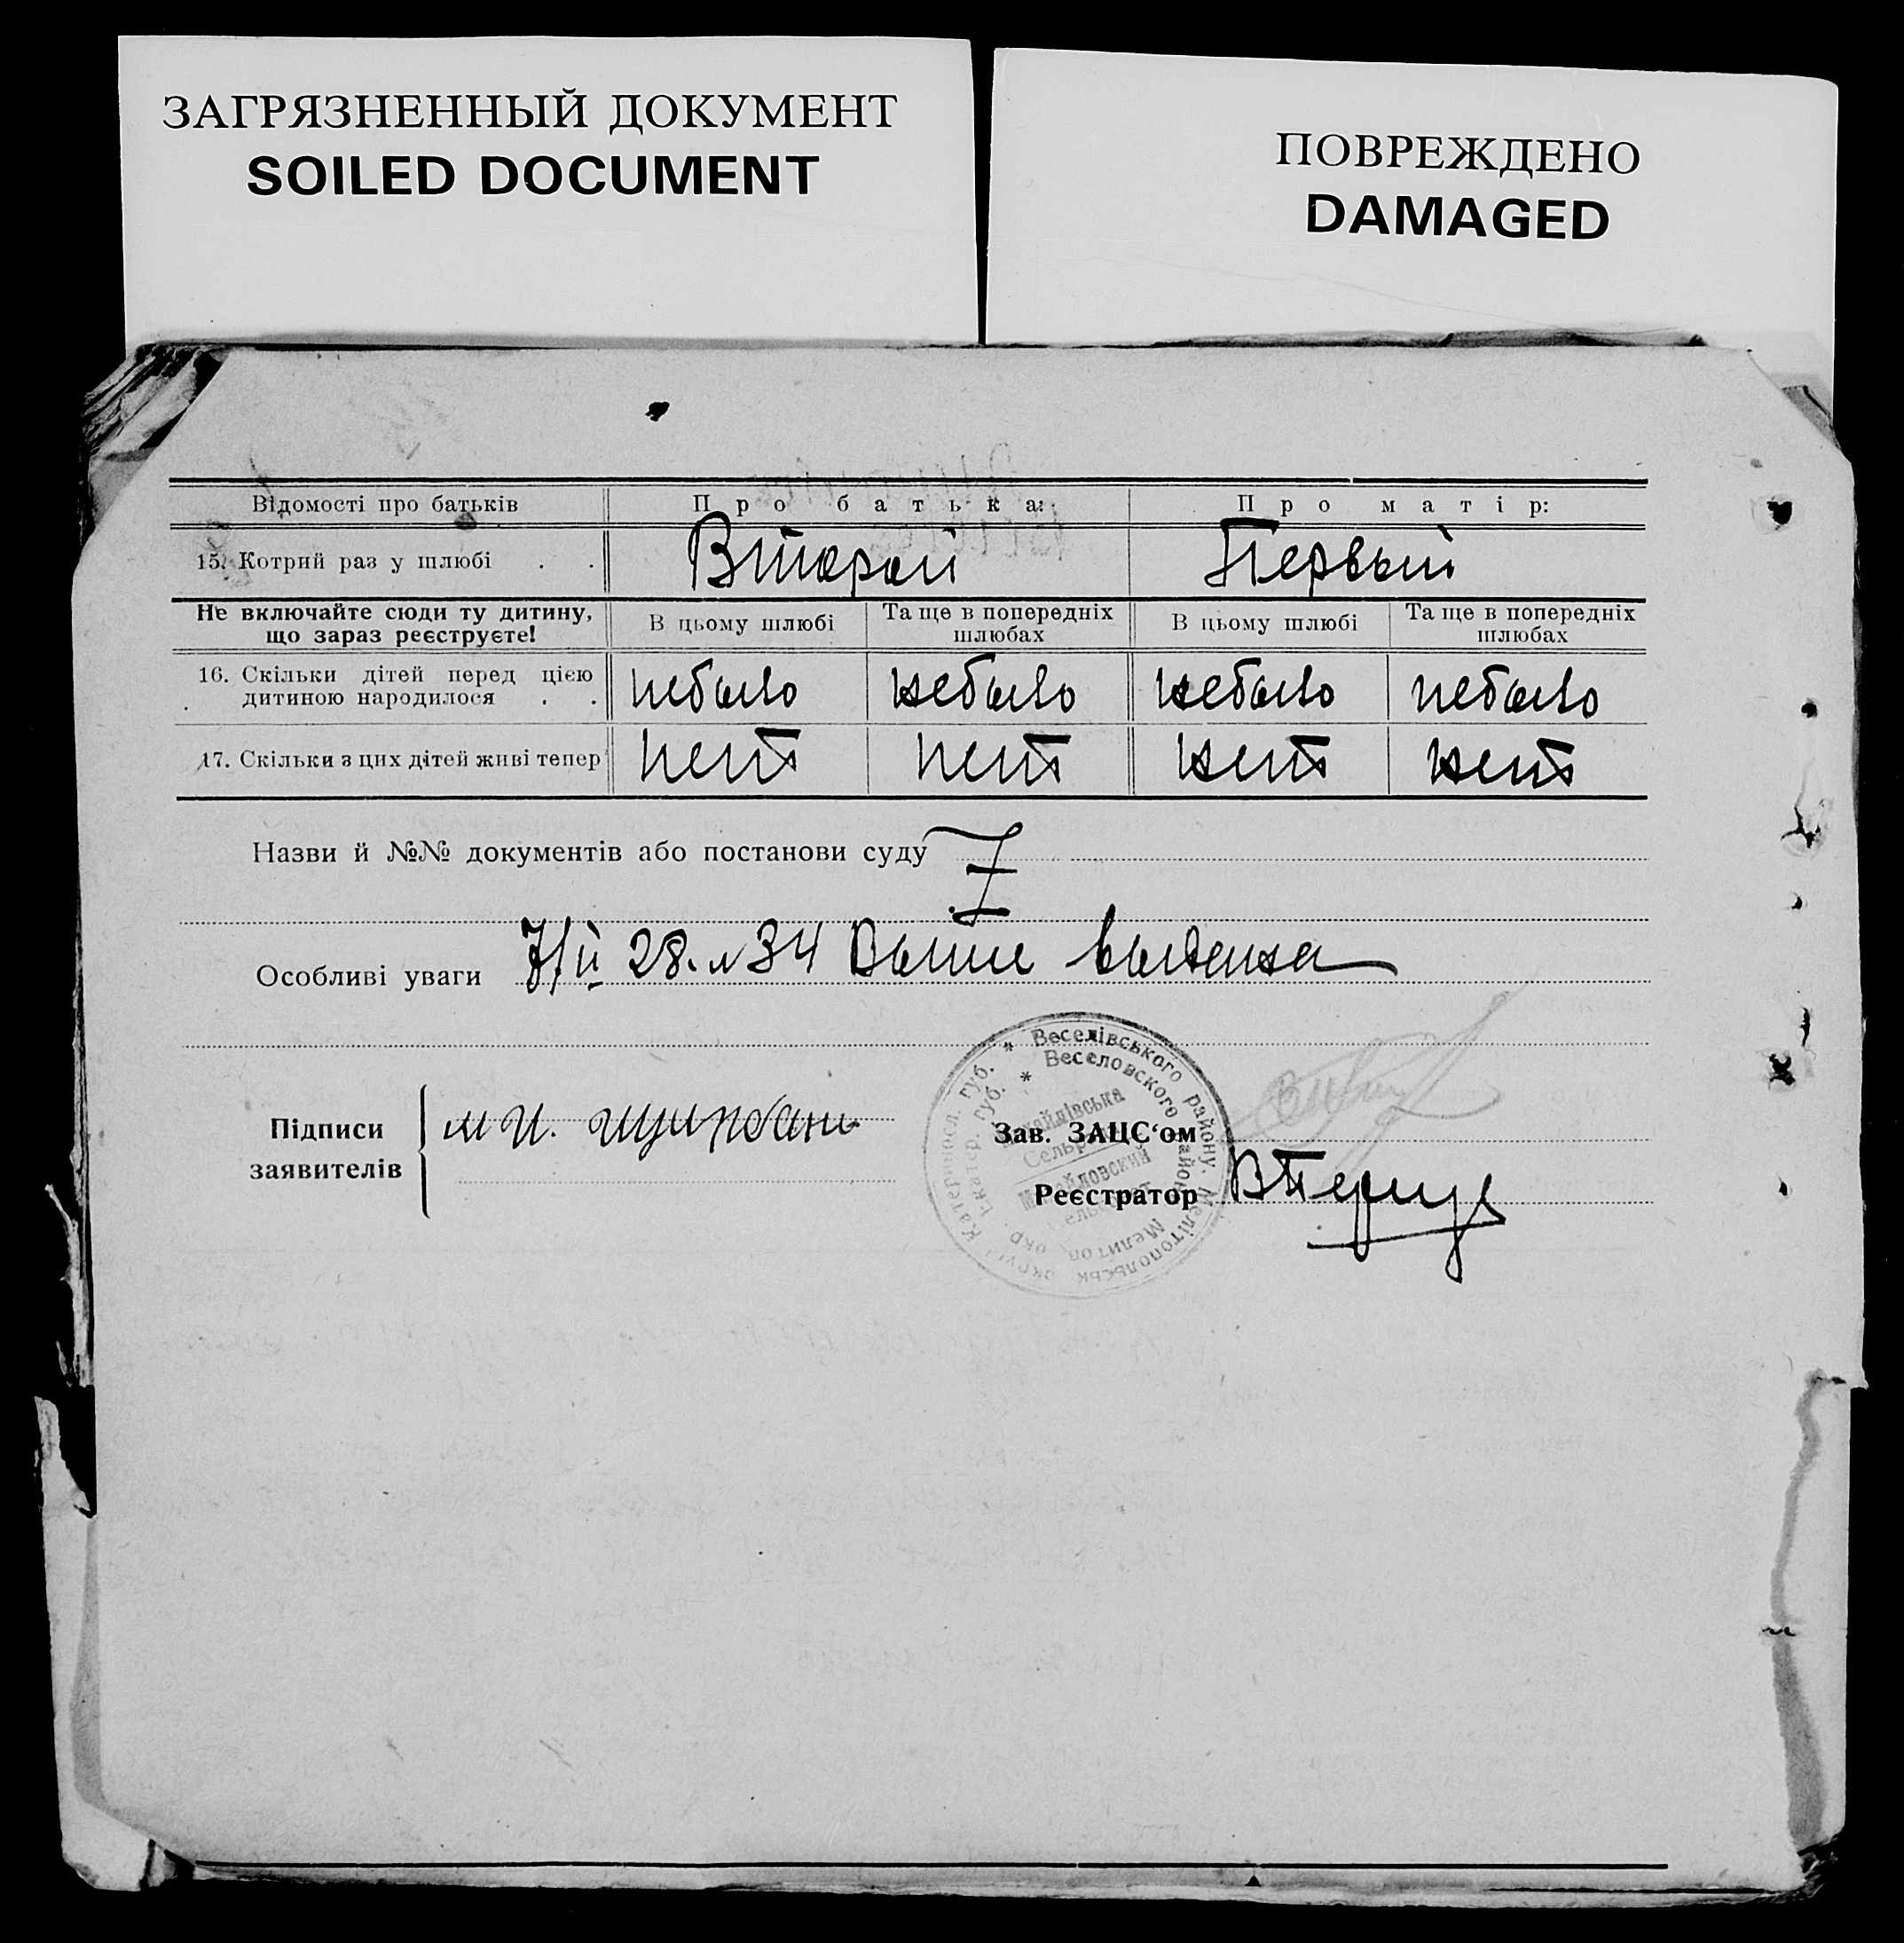 ЗАГРЯЗНЕННЫЙ ДОКУМЕНТ
SOILED DOCUMENT
ПОВРЕЖДЕНО
DAMAGED
Відомості про батьків Про батька: Про матір:
15. Котрий раз у шлюбі . . Второй Первый
Не включайте сюди ту дитину, що зараз реєструєте! В цьому шлюбі Та ще в попередніх шлюбах В цьому шлюбі Та ще в попередніх шлюбах
16. Скільки дітей перед цією
дитиною народилося . . небыло небыло небыло небыло
17. Скільки з цих дітей живі тепер нет нет нет нет
Назви й №№ документів або постанови суду
Особливі уваги 7/ІІ 28. № 34 Выпис выдана
Підписи заявителів М И.
Зав. ЗАЦС‘ом
Реєстратор
* Веселівського району. Мелітопольськ округ Катериносл. губ.
* Веселовского район Мелитоп. окр. Екатер. губ.
Михайлівська
Сельрада
Михайловский
Сельсовет